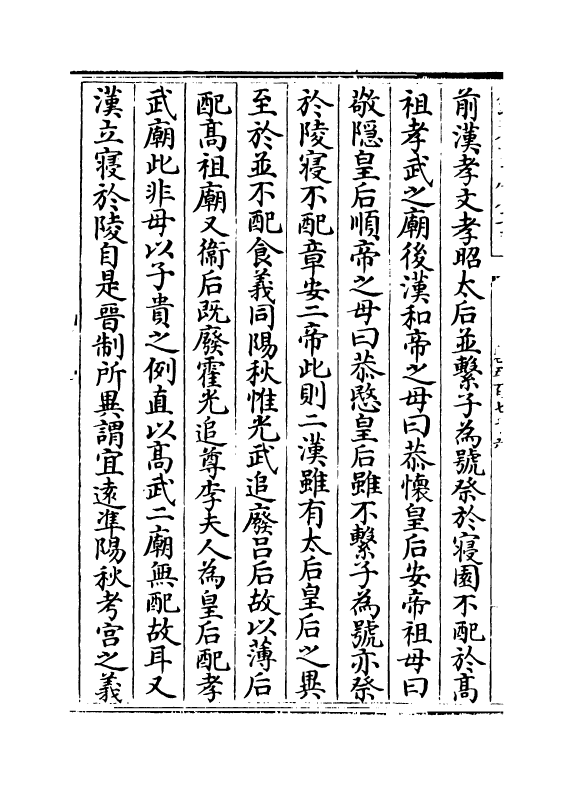 前漢孝文孝昭太后並繫子為號祭於寢園不配於髙
祖孝武之廟後漢和帝之母曰恭懷皇后安帝祖母曰
敬隠皇后順帝之母曰恭愍皇后雖不繫子為號亦祭
於陵寢不配章安二帝此則二漢雖有太后皇后之異
至於並不配食義同陽秋惟光武追廢吕后故以薄后
配髙祖廟又衞后既廢霍光追尊李夫人為皇后配孝
武廟此非母以子貴之例直以髙武二廟無配故耳又
漢立寢於陵自是晉制所異謂宜逺準陽秋考宫之義